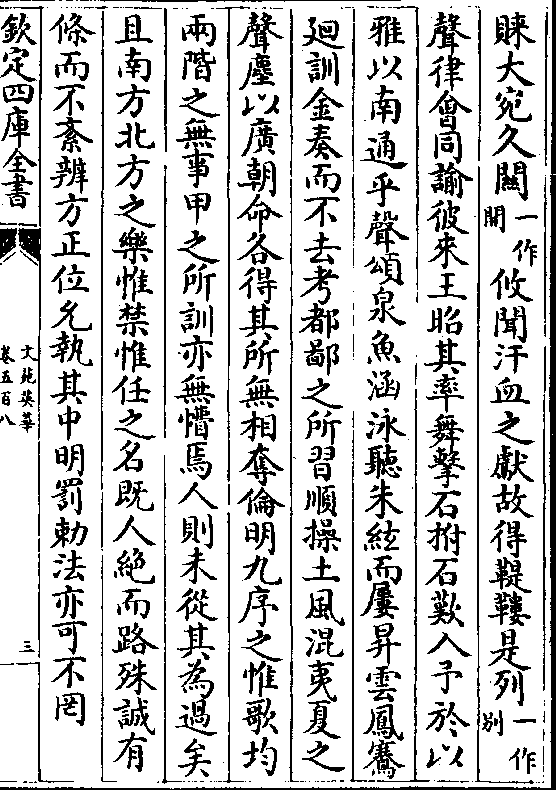 賕大宛久闗一作開攸聞汗血之獻故得鞮鞻是列一作别
聲律會同諭彼來王昭其率舞擊石拊石歎入予於以
雅以南通乎聲頌泉魚涵泳聽朱絃而屢昇雲鳳騫
廻訓金奏而不去考都鄙之所習順操土風混夷夏之
聲塵以廣朝命各得其所無相奪倫明九序之惟歌均
兩階之無事甲之所訓亦無懵焉人則未從其為過矣
且南方北方之樂惟禁惟任之名既人絶而路殊誠有
條而不紊辨方正位允執其中明罰勅法亦可不罔
欽定四庫全書
文苑英華
卷五百八
三